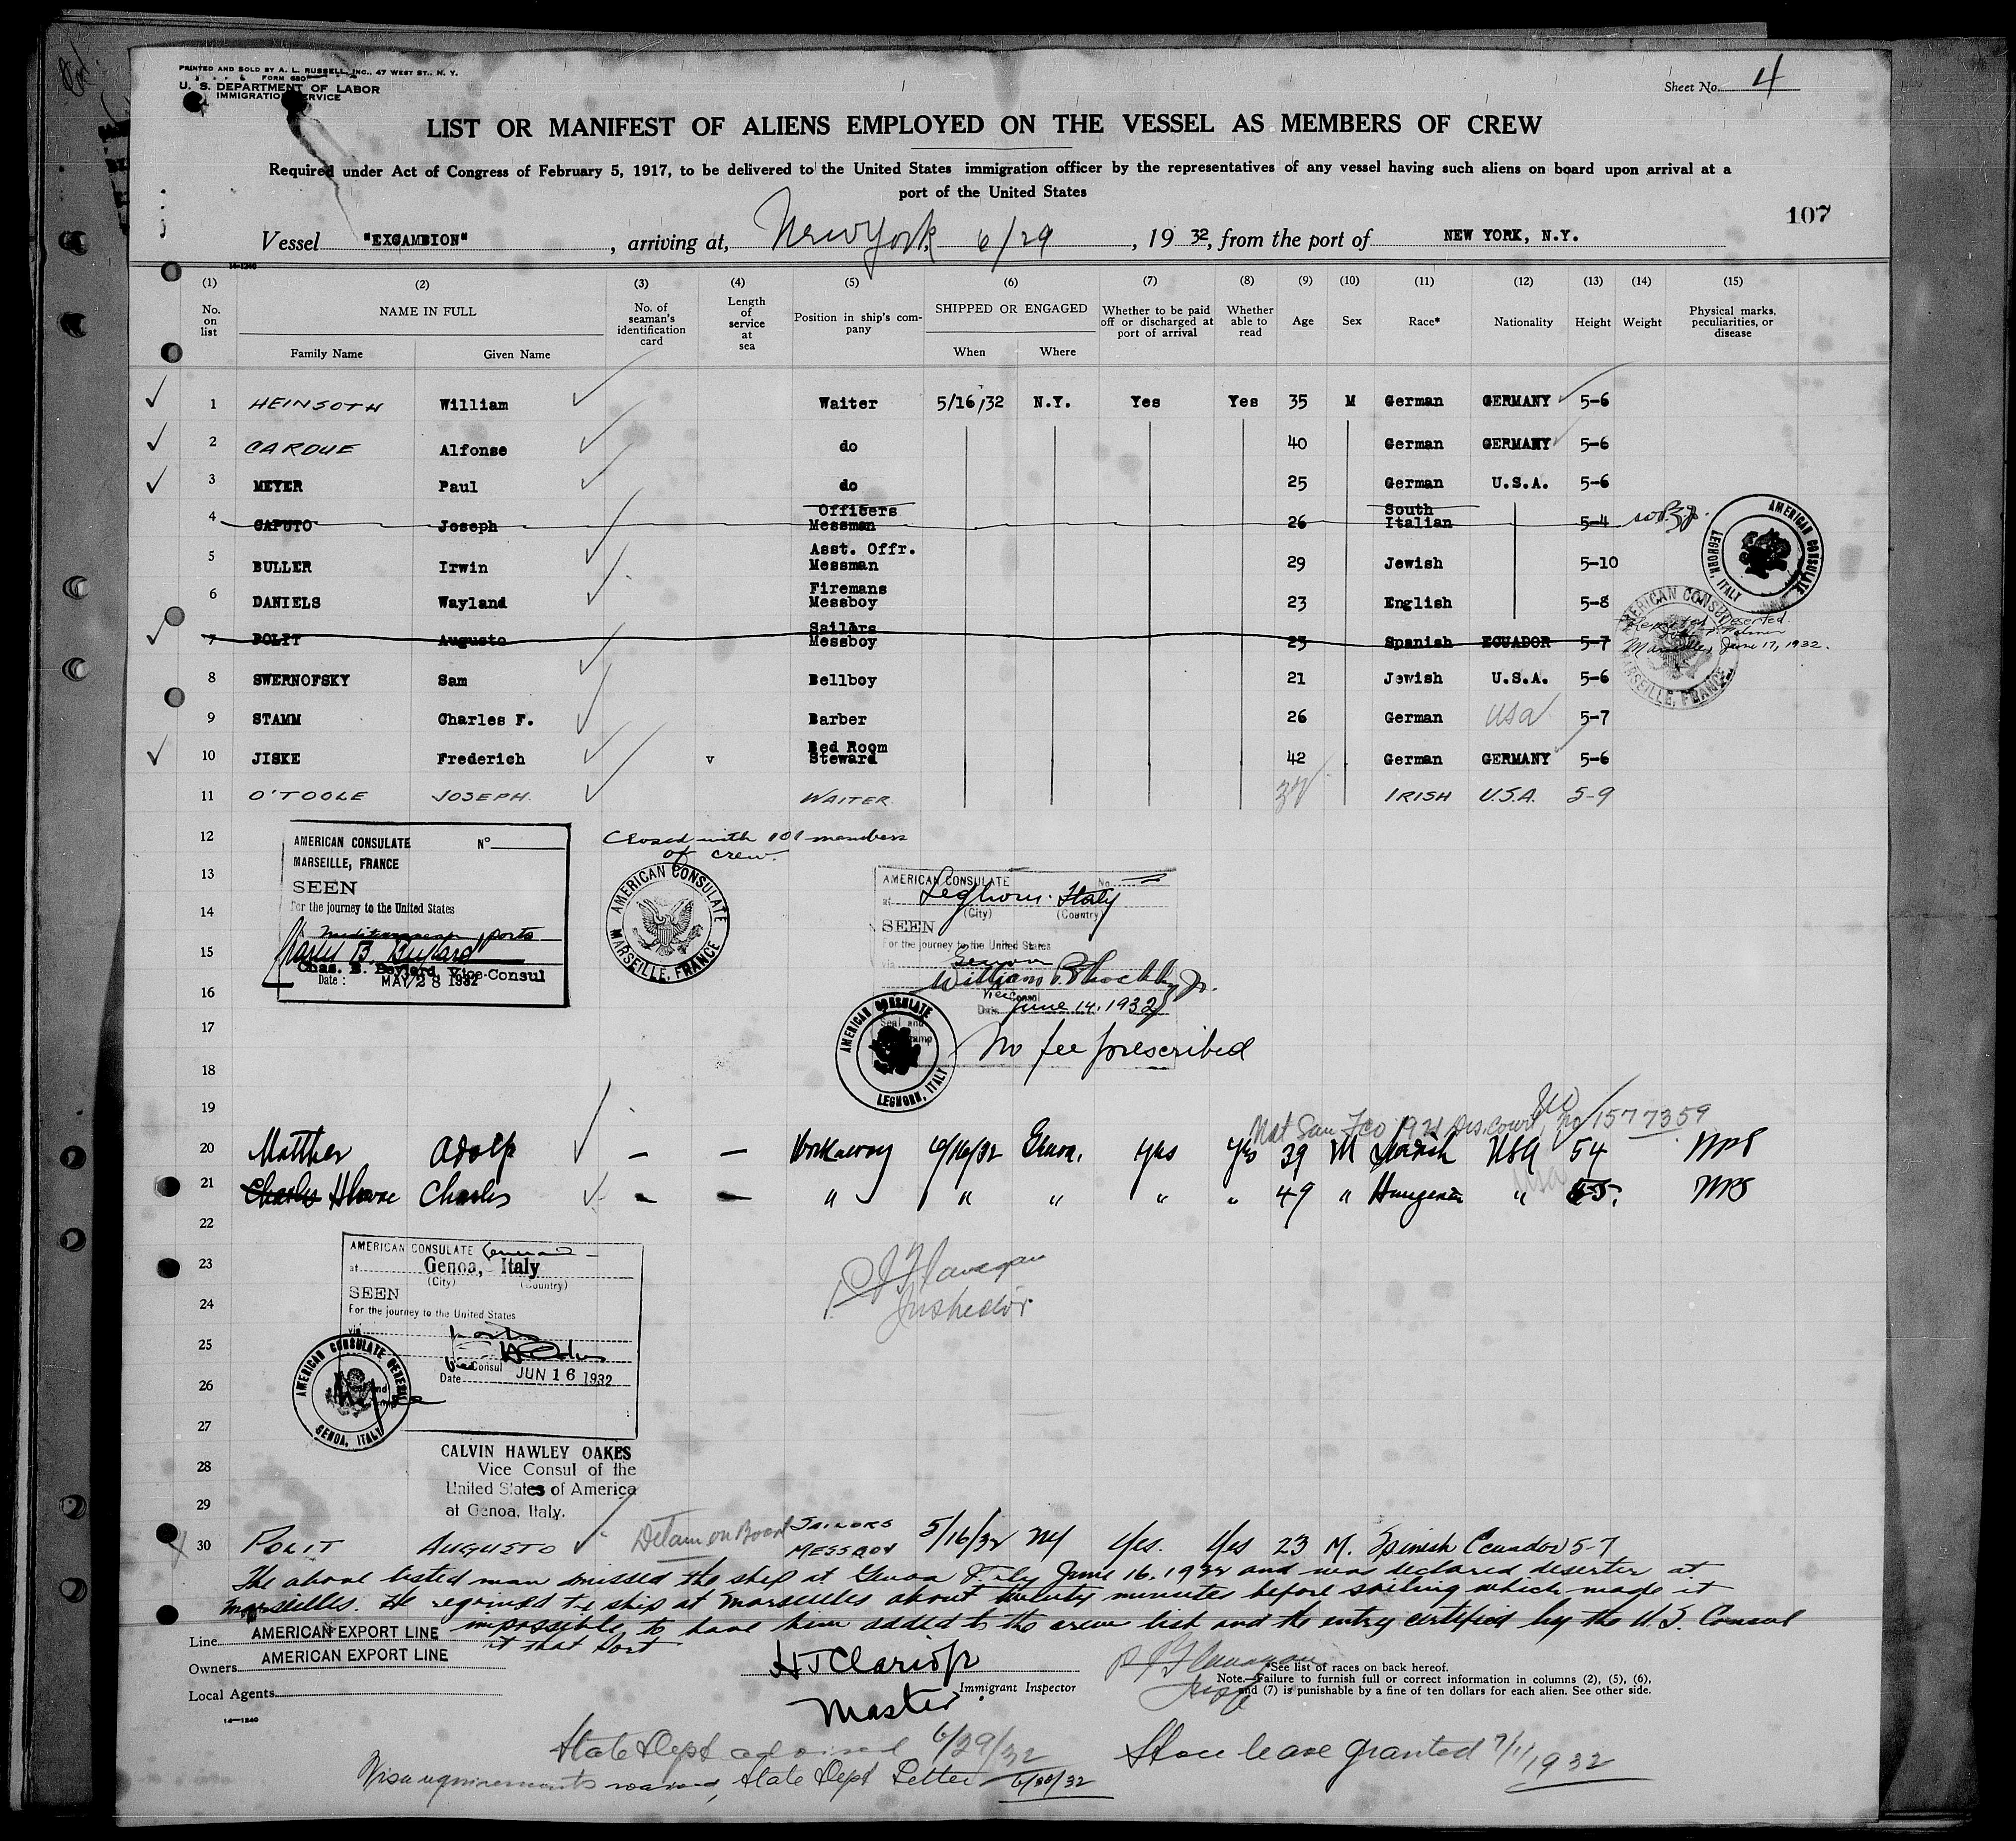 PRINTED AND SOLD BY A. L. RUSSELL, INC., 47 WEST ST., N. Y.
FORM 680
U. S. DEPARTMENT OF LABOR
IMMIGRATION SERVICE
Sheet No. 4
LIST OR MANIFEST OF ALIENS EMPLOYED ON THE VESSEL AS MEMBERS OF CREW
Required under Act of Congress of February 5, 1917, to be delivered to the United States immigration officer by the representatives of any vessel having such aliens on board upon arrival at a
port of the United States
107
Vessel "EXCAMBION", arriving at, New York, 6/29, 19 32, from the port of NEW YORK, N.Y.
14-1240
(1) (2) (3) (4) (5) (6) (7) (8) (9) (10) (11) (12) (13) (14) (15)
No. on list NAME IN FULL Family Name Given Name No. of seaman's identification card Length of service at sea Position in ship's company SHIPPED OR ENGAGED When Where Whether to be paid off or discharged at port of arrival Whether able to read Age Sex Race* Nationality Height Weight Physical marks, peculiarities, or disease
1 HEINSOTH William Waiter 5/16/32 N.Y. Yes Yes 35 M German GERMANY 5-6
2 CARDUE Alfonse do 40 German GERMANY 5-6
3 MEYER Paul do 25 German U.S.A. 5-6
4 CAPUTO Joseph Officers Messman 26 South Italian 5-4
5 BULLER Irwin Asst. Offr. Messman 29 Jewish 5-10
6 DANIELS Wayland Firemans Messboy 23 English 5-8
7 POLIT Augusto Sailors Messboy 23 Spanish ECUADOR 5-7
Reported Deserted.
Marseille, June 17, 1932.
8 SWERNOFSKY Sam Bellboy 21 Jewish U.S.A. 5-6
9 STAMM Charles F. Barber 26 German USA 5-7
10 JISKE Frederich v Bed Room Steward 42 German GERMANY 5-6
11 O'TOOLE JOSEPH. WAITER IRISH U.S.A. 5-9
AMERICAN CONSULATE LEGHORN, ITALY
AMERICAN CONSULATE MARSEILLE, FRANCE
12
Closed with 101 members
of crew.
AMERICAN CONSULATE N°
MARSEILLE, FRANCE
SEEN
For the journey to the United States
Mediterranean ports
Chas. B. Beylard, Vice-Consul
Date: MAY 28 1932
AMERICAN CONSULATE MARSEILLE, FRANCE
AMERICAN CONSULATE No.
at Leghorn. Italy
(City) (Country)
SEEN
For the journey to the United States
via Genoa
Vice Consul
Date June 14, 1932
Seal and Stamp
AMERICAN CONSULATE LEGHORN, ITALY
No fee prescribed
13
14
15
16
17
18
19
Nat San Fco 1921 Dis. Court, No 1577359
20 Matther Adolf — — Workaway 6/16/32 Genoa. yes yes 39 M USA 54
21 Charles Charles — — " " " " " 49 " "
22
23
24
25
26
27
28
29
AMERICAN CONSULATE General
at Genoa, Italy
(City) (Country)
SEEN
For the journey to the United States
via
Vice Consul
Date JUN 16 1932
AMERICAN CONSULATE GENERAL GENOA, ITALY
Inspector
CALVIN HAWLEY OAKES
Vice Consul of the
United States of America
at Genoa, Italy.
30 POLIT AUGUSTO Detain on Board SAILORS MESSBOY 5/16/32 NY Yes. Yes 23 M. Spanish Ecuador 5-7
The above listed man missed the ship at Genoa Italy June 16. 1932 and was declared deserter at
Marseilles. He rejoined the ship at Marseilles about twenty minutes before sailing which made it
impossible to have him added to the crew list and the entry certified by the U.S. Consul
at that Port
Line AMERICAN EXPORT LINE
Owners AMERICAN EXPORT LINE
Local Agents
14-1240
Master.
Immigrant Inspector
*See list of races on back hereof.
Note.—Failure to furnish full or correct information in columns (2), (5), (6),
and (7) is punishable by a fine of ten dollars for each alien. See other side.
State Dept advised 6/29/32
Visa requirements waived, State Dept Letter 6/30/32
Shore leave granted 7/1/1932